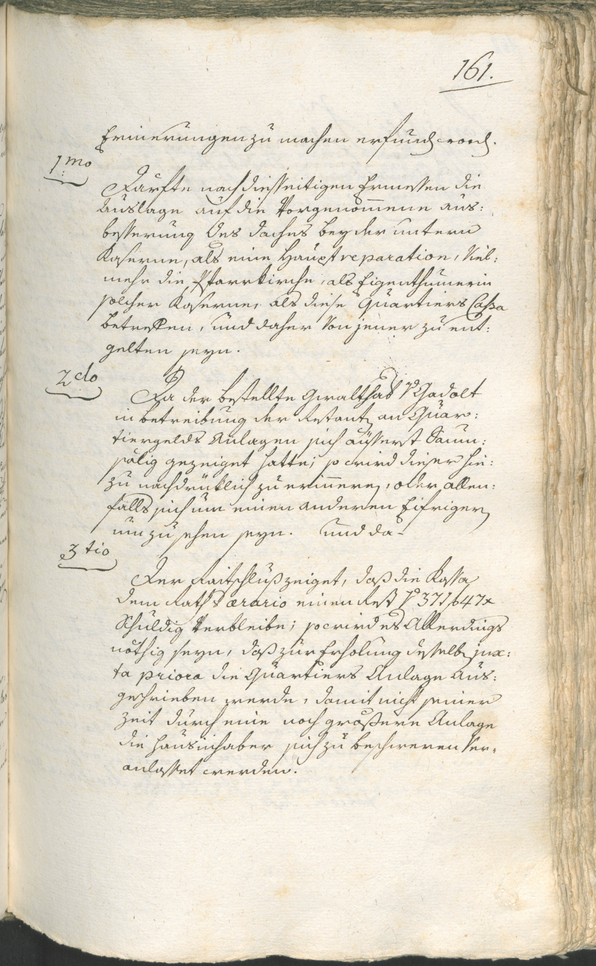 161.
Erinerungen zu machen erfund: word:
1mo
Dürfte nach diesseitigen Ermessen die
Auslage auf die Vorgenommene aus:
besserung des Daches bey der untern
Kaserne, als eine Haubtreparation, Viel-
mehr die Pfarrkirche, als Eigenthümerin
solcher Kaserne, als diese Quartiers Cassa
betreffen, und daher Von jener zu ent:
gelten seyn.
2do
Da der bestellte Gwalthab
in betreibung der Restant: an Quar:
tiergelds Anlagen sich äüsserst Saum:
sälig gezeiget hatte; so wird dieser hie:
zu nachdrüklich zu erinnern, oder allen-
falls sich um einen anderen Eifrigern
umzusehen seyn. Und da
3tio
Der Raitschluß zeiget, daß die Kassa
dem Rath Aerario einen Rest f 371 b 47x
Schuldig Verbleibe; so wird es Allerdings
nöthig seyn, daß zur Erholung desselb: jux:
ta priora die Quartiers Anlage Aus:
geschrieben werde, damit nicht seiner
Zeit durch eine noch größere Anlage
die Hausinhaber sich zu beschweren Ver-
anlasset werden.